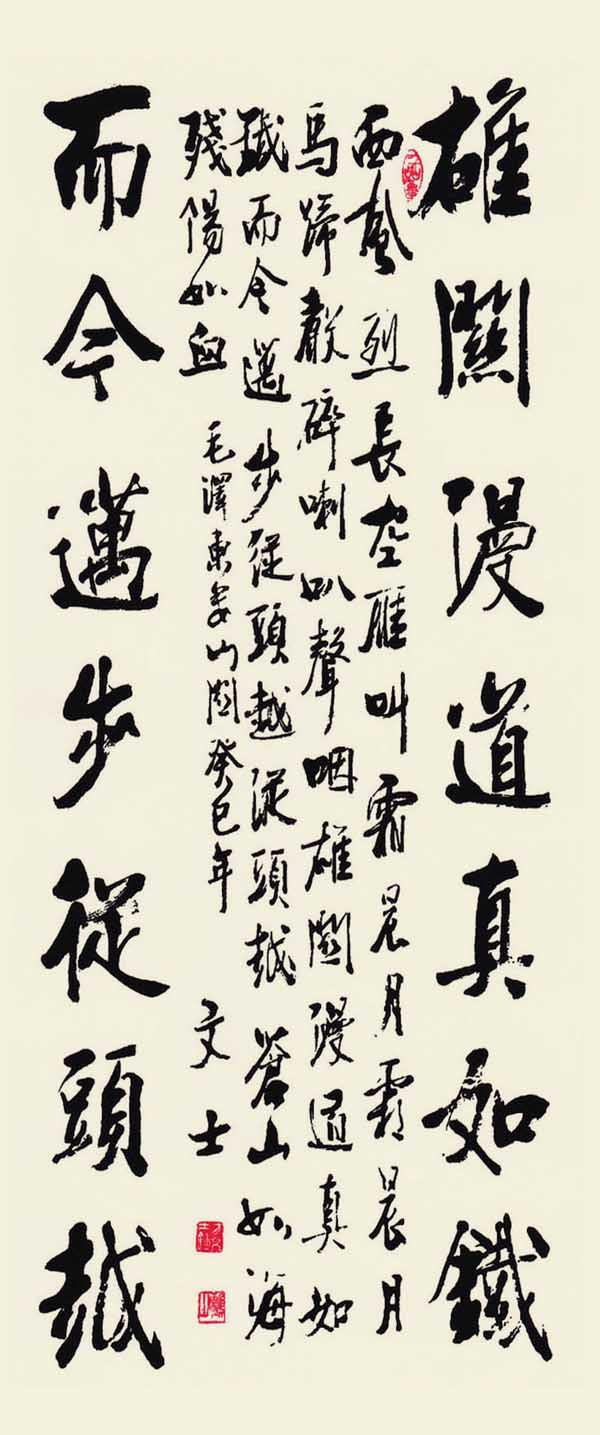 雄關漫道真如鐵
西風烈長空雁叫霜晨月霜晨月
馬蹄聲碎喇叭聲咽雄關漫道真如
鐵而今邁步從頭越從頭越蒼山如海
殘陽如血 毛澤東婁山關癸巳年 文士
而今邁步從頭越